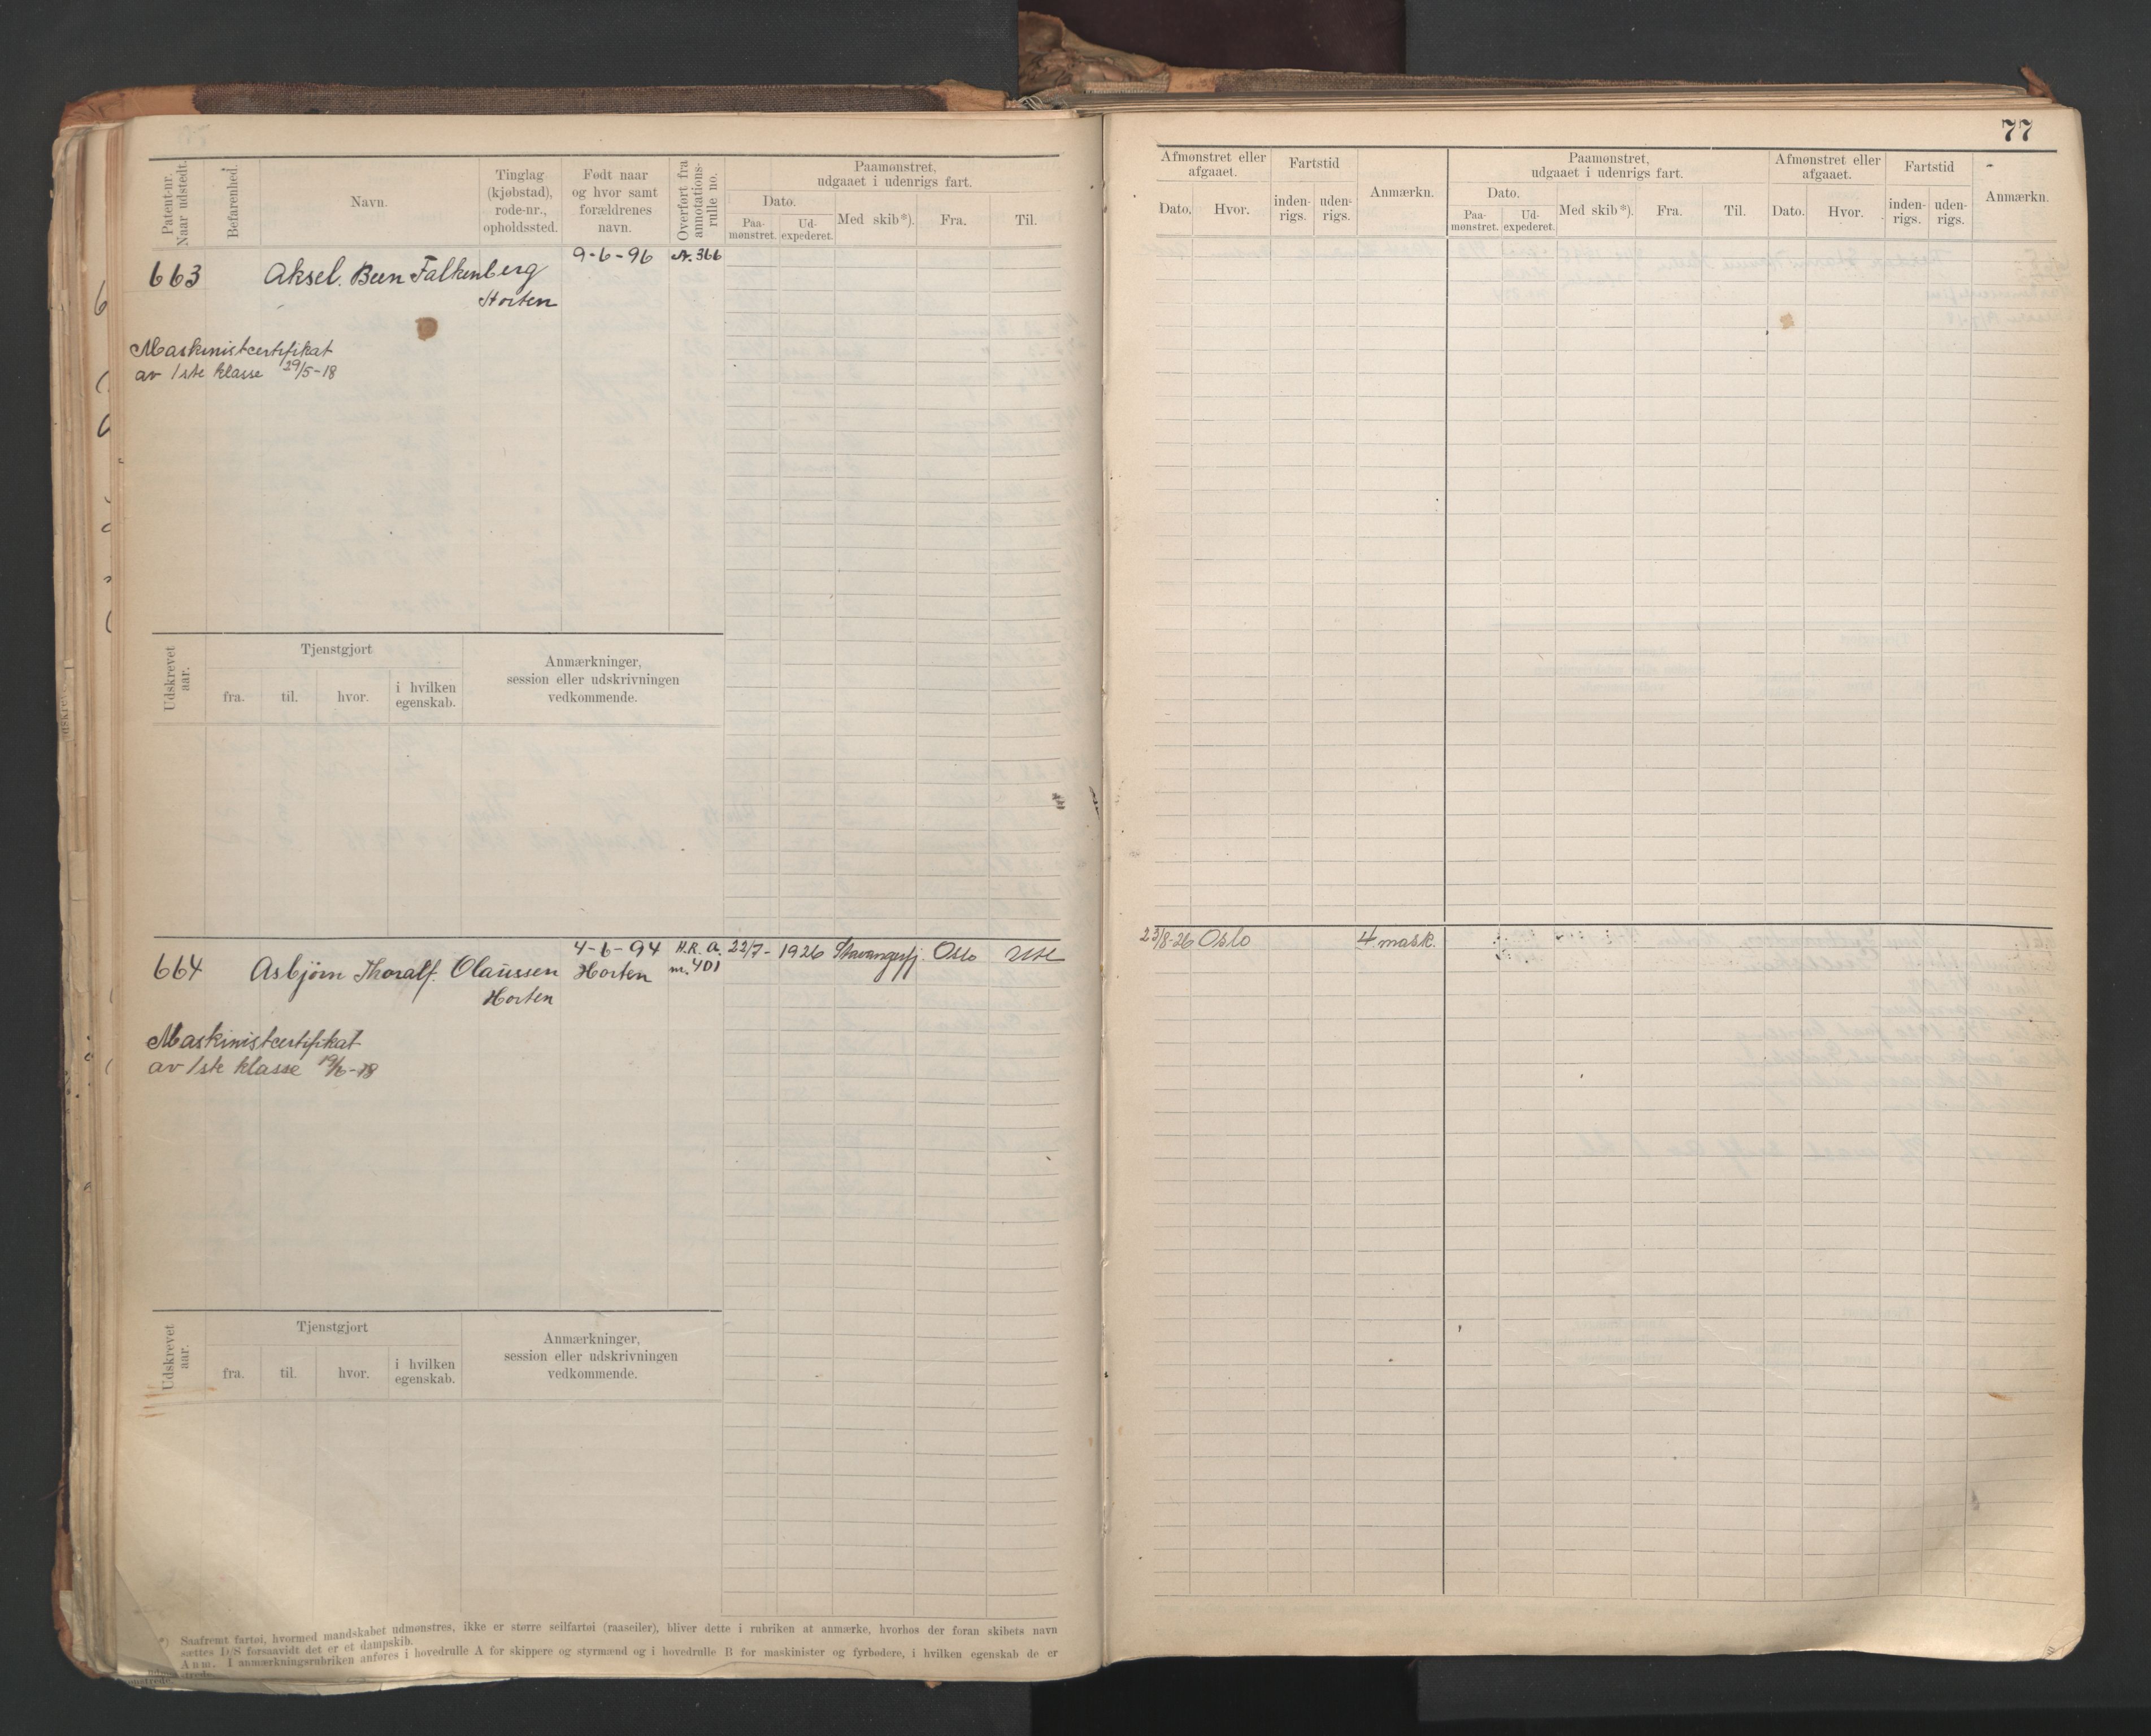 77
Patent-nr.
Naar udstedt.
Befarenhed.
Navn.
Tinglag
(kjøbstad),
rode-nr.,
opholdssted.
Født naar
og hvor samt
forældrenes
navn.
Overført fra
annotations-
rulle no.
Paamønstret,
udgaaet i udenrigs fart.
Dato.
Paa-
mønstret.
Ud-
expederet.
Med skib*).
Fra.
Til.
663
Aksel. Been Falkenberg
Horten
9-6-96
A. 366
Maskinistcertifikat
av 1ste klasse 29/5-18
Udskrevet
aar.
Tjenstgjort
fra.
til.
hvor.
i hvilken
egenskab.
Anmærkninger,
session eller udskrivningen
vedkommende.
664
Asbjørn Thoralf. Olaussen
Horten
4-6-94
Horten
H.R. A.
nr. 401
22/7- 1926 Stavangerfj. Oslo
Maskinistcertifikat
av 1ste klasse 19/6-18
Udskrevet
aar.
Tjenstgjort
fra.
til.
hvor.
i hvilken
egenskab.
Anmærkninger,
session eller udskrivningen
vedkommende.
*) Saafremt fartøi, hvormed mandskabet udmønstres, ikke er større seilfartøi (raaseiler), bliver dette i rubriken at anmærke, hvorhos der foran skibets navn
sættes D/S forsaavidt det er et dampskib.
Anm. I anmærkningsrubriken anføres i hovedrulle A for skippere og styrmænd og i hovedrulle B for maskinister og fyrbødere, i hvilken egenskab de er
Afmønstret eller
afgaaet.
Dato.
Hvor.
Fartstid
inden-
rigs.
uden-
rigs.
Anmærkn.
Paamønstret,
udgaaet i udenrigs fart.
Dato.
Paa-
mønstret.
Ud-
expederet.
Med skib*).
Fra.
Til.
Afmønstret eller
afgaaet.
Dato.
Hvor.
Fartstid
inden-
rigs.
uden-
rigs.
Anmærkn.
23/8-26 Oslo
4 mask.